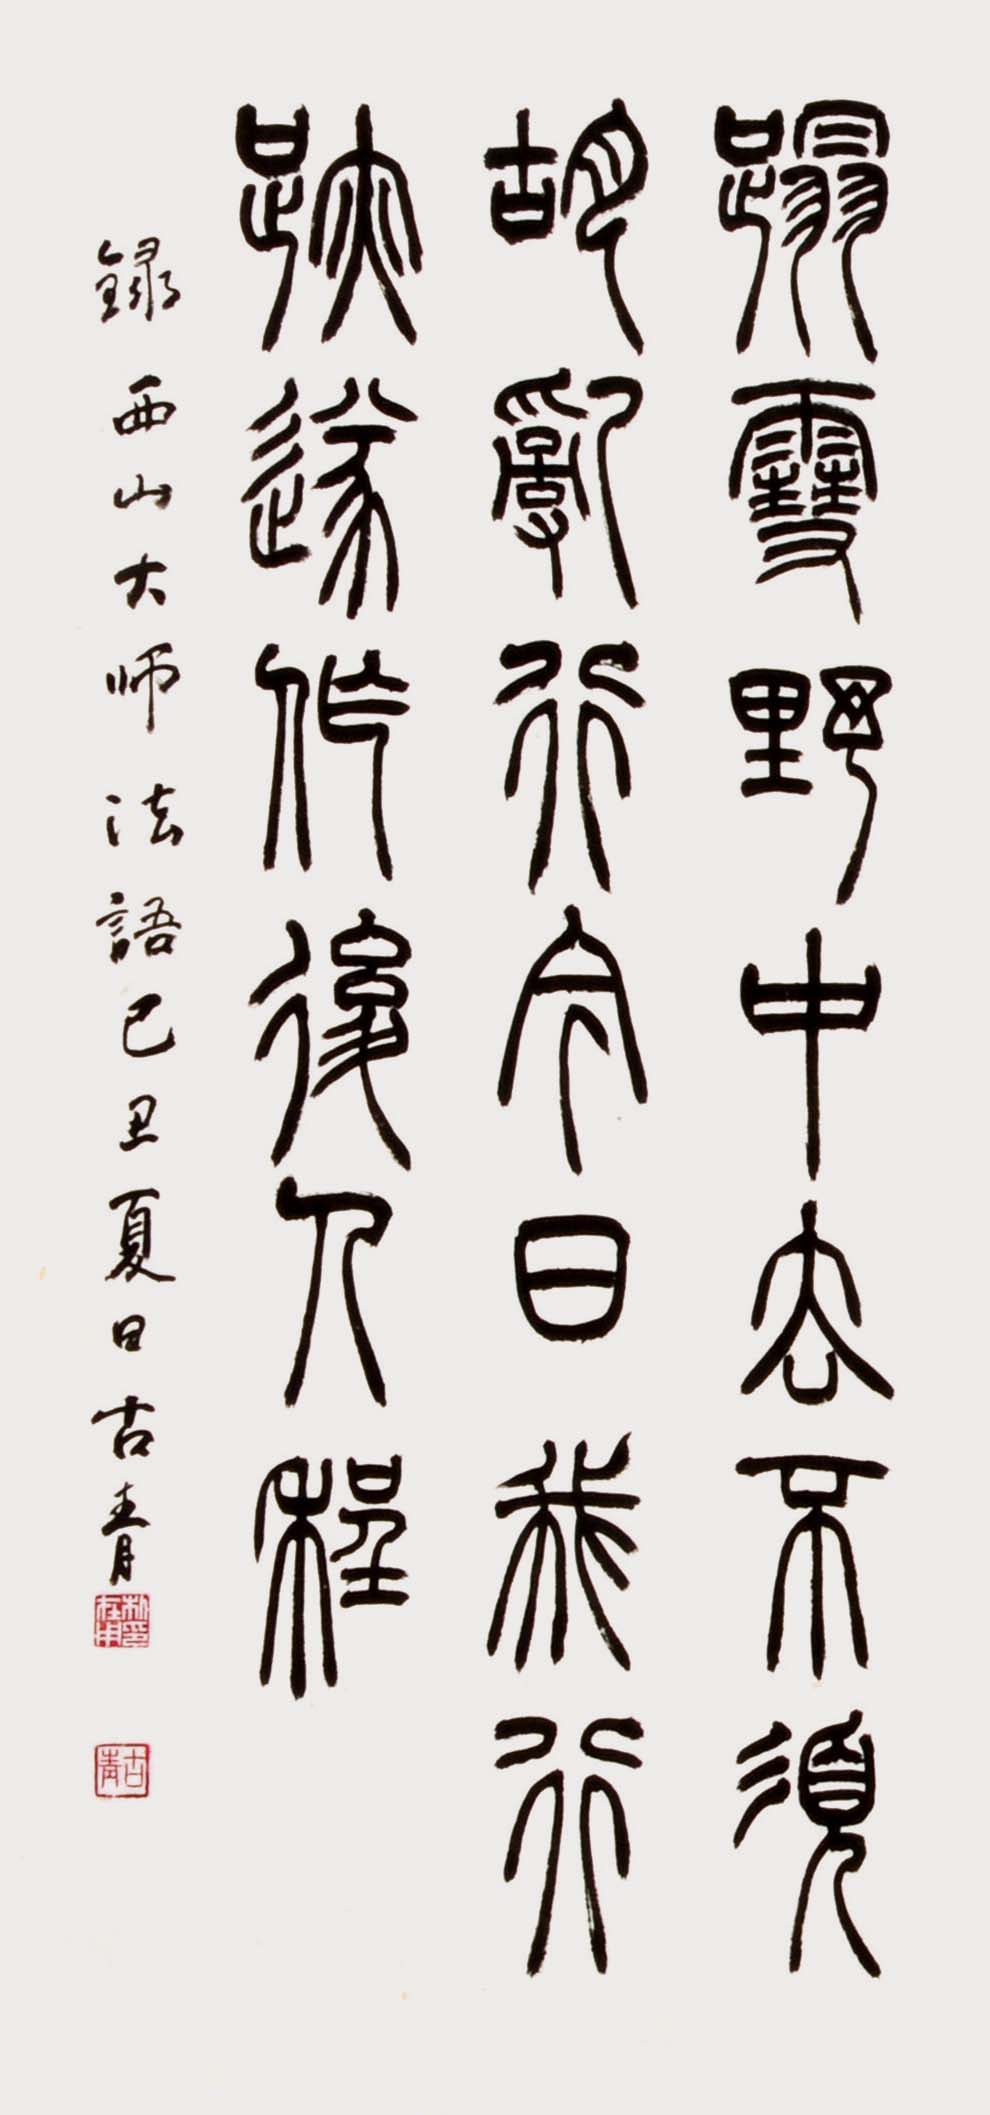 蹋雪野中去不須
胡亂行今日我行
跡遂作後人程
錄西山大師法語己丑夏日古青
古青